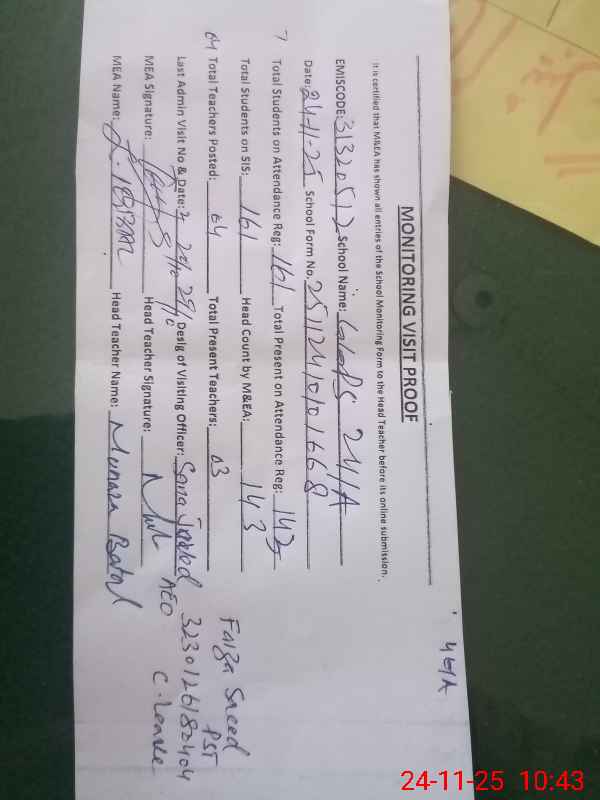 44A
MONITORING VISIT PROOF
It is certified that M&EA has shown all entries of the School Monitoring Form to the Head Teacher before its online submission.
EMISCODE: 31320512 School Name: 244A
Date: 24-11-25 School Form No. 2511240101668
7 Total Students on Attendance Reg: 161 Total Present on Attendance Reg: 143
Total Students on SIS: 161 Head Count by M&EA: 143
04 Total Teachers Posted: 04 Total Present Teachers: 03
Last Admin Visit No & Date: 2 Desig of Visiting Officer: AEO
MEA Signature: Head Teacher Signature:
MEA Name: Head Teacher Name:
Faiza Saeed
PST
3230126182404
C. Leave
24-11-25 10:43